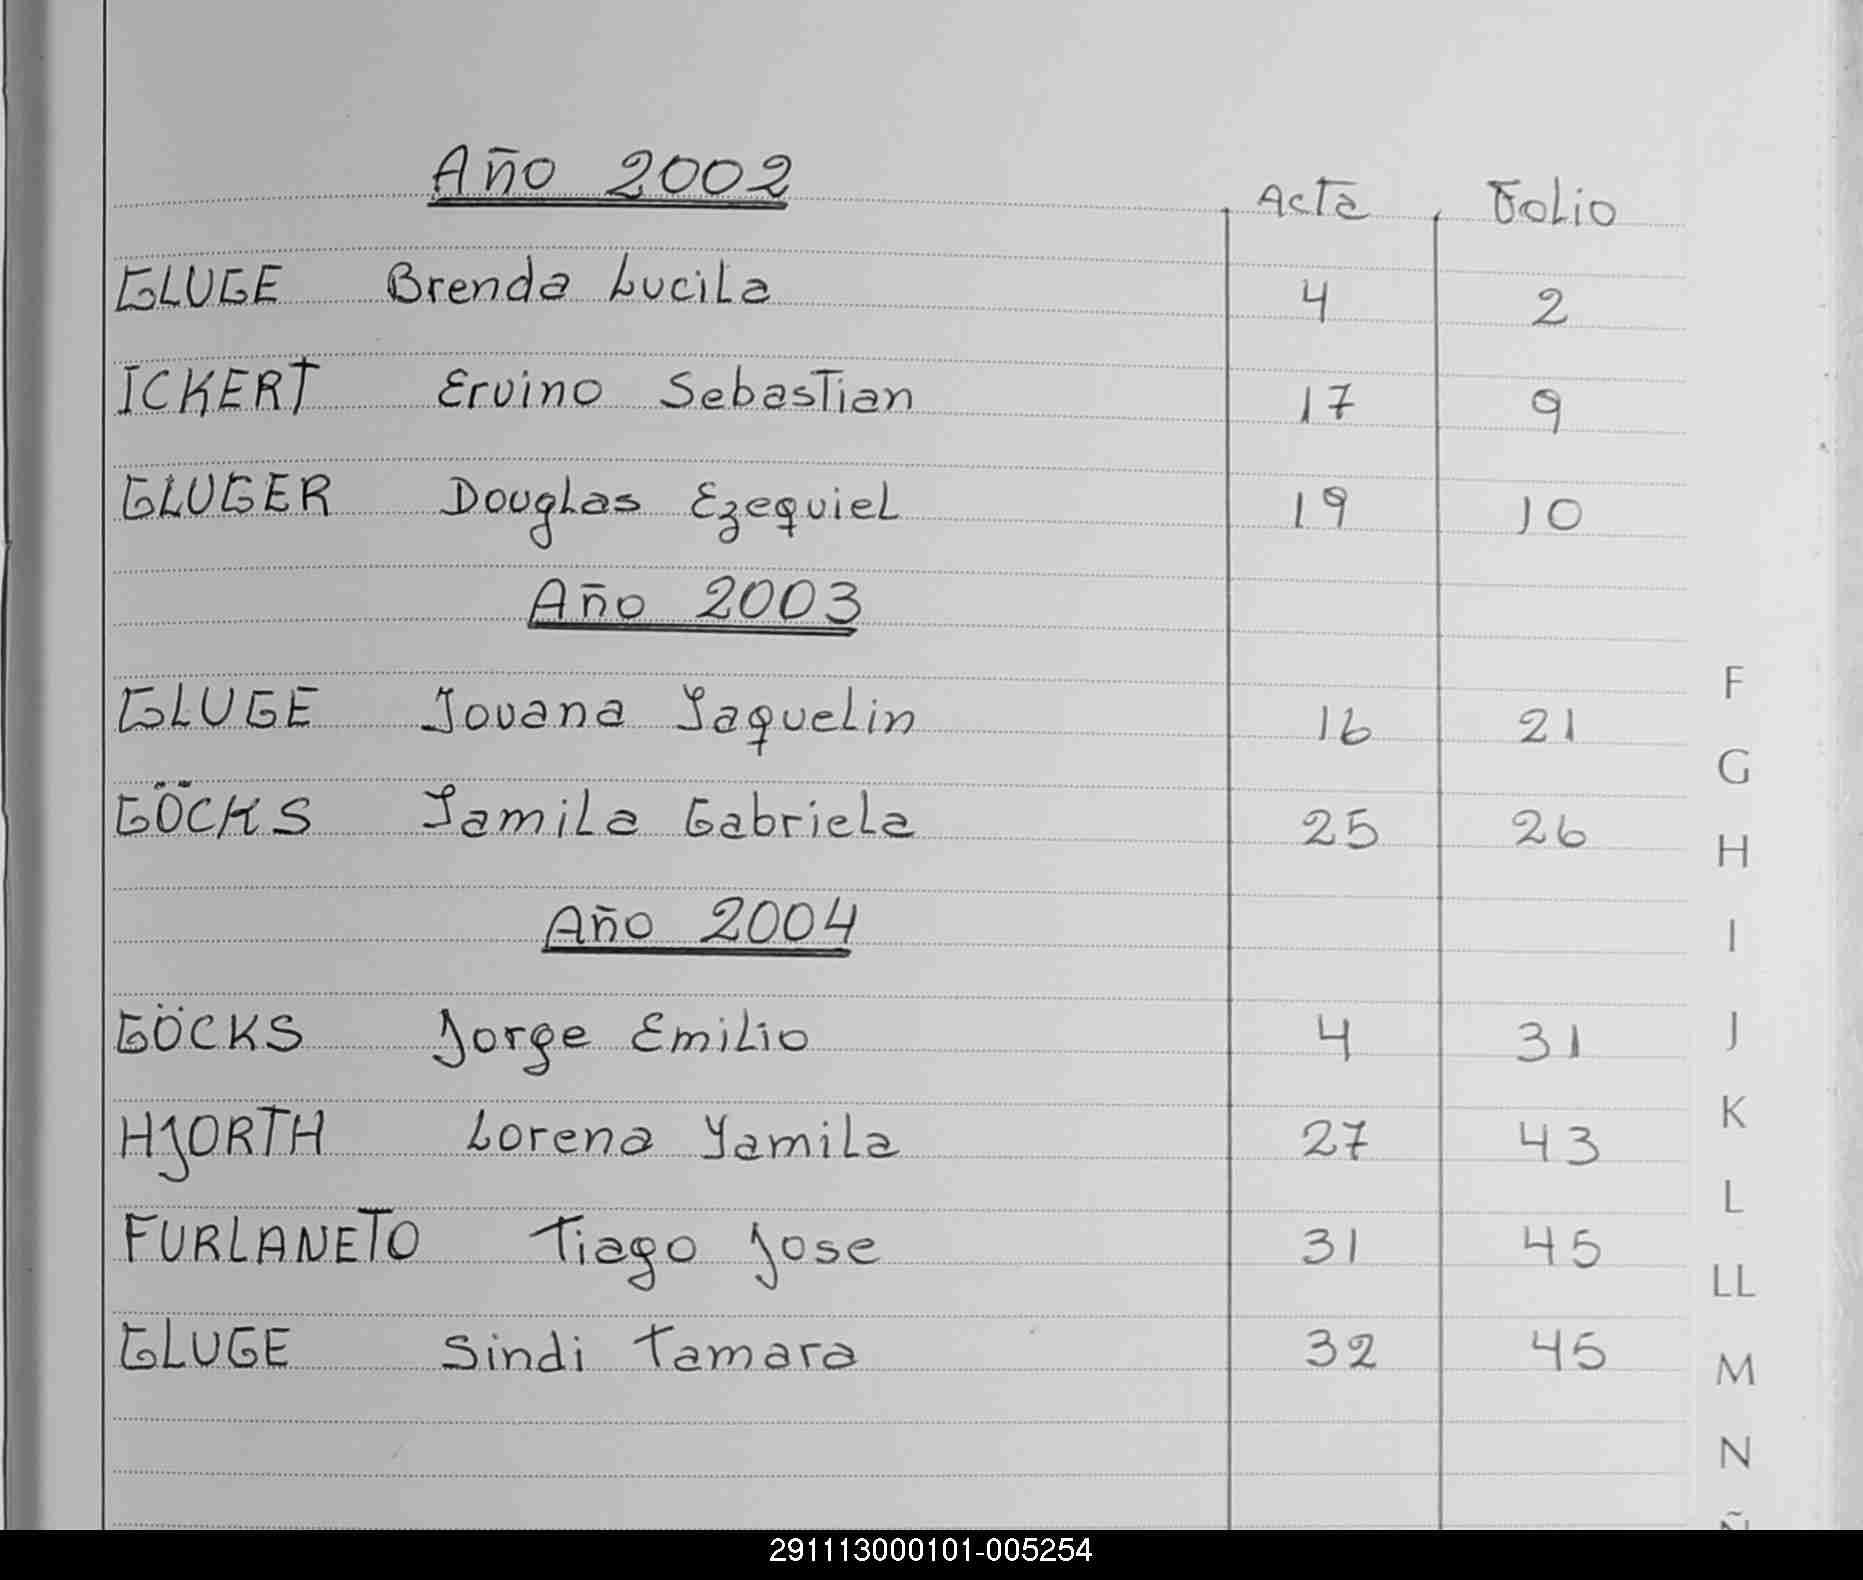 Año 2002 Acta Folio
GLUGE Brenda Lucila 4 2
ICKERT Ervino Sebastian 17 9
GLUGER Douglas Ezequiel 19 10
Año 2003
GLUGE Jovana Yaquelin 16 21
GÖCKS Yamila Gabriela 25 26
Año 2004
GÖCKS Jorge Emilio 4 31
HJORTH Lorena Yamila 27 43
FURLANETO Tiago Jose 31 45
GLUGE Sindi Tamara 32 45
F
G
H
I
J
K
L
LL
M
N
Ñ
291113000101-005254